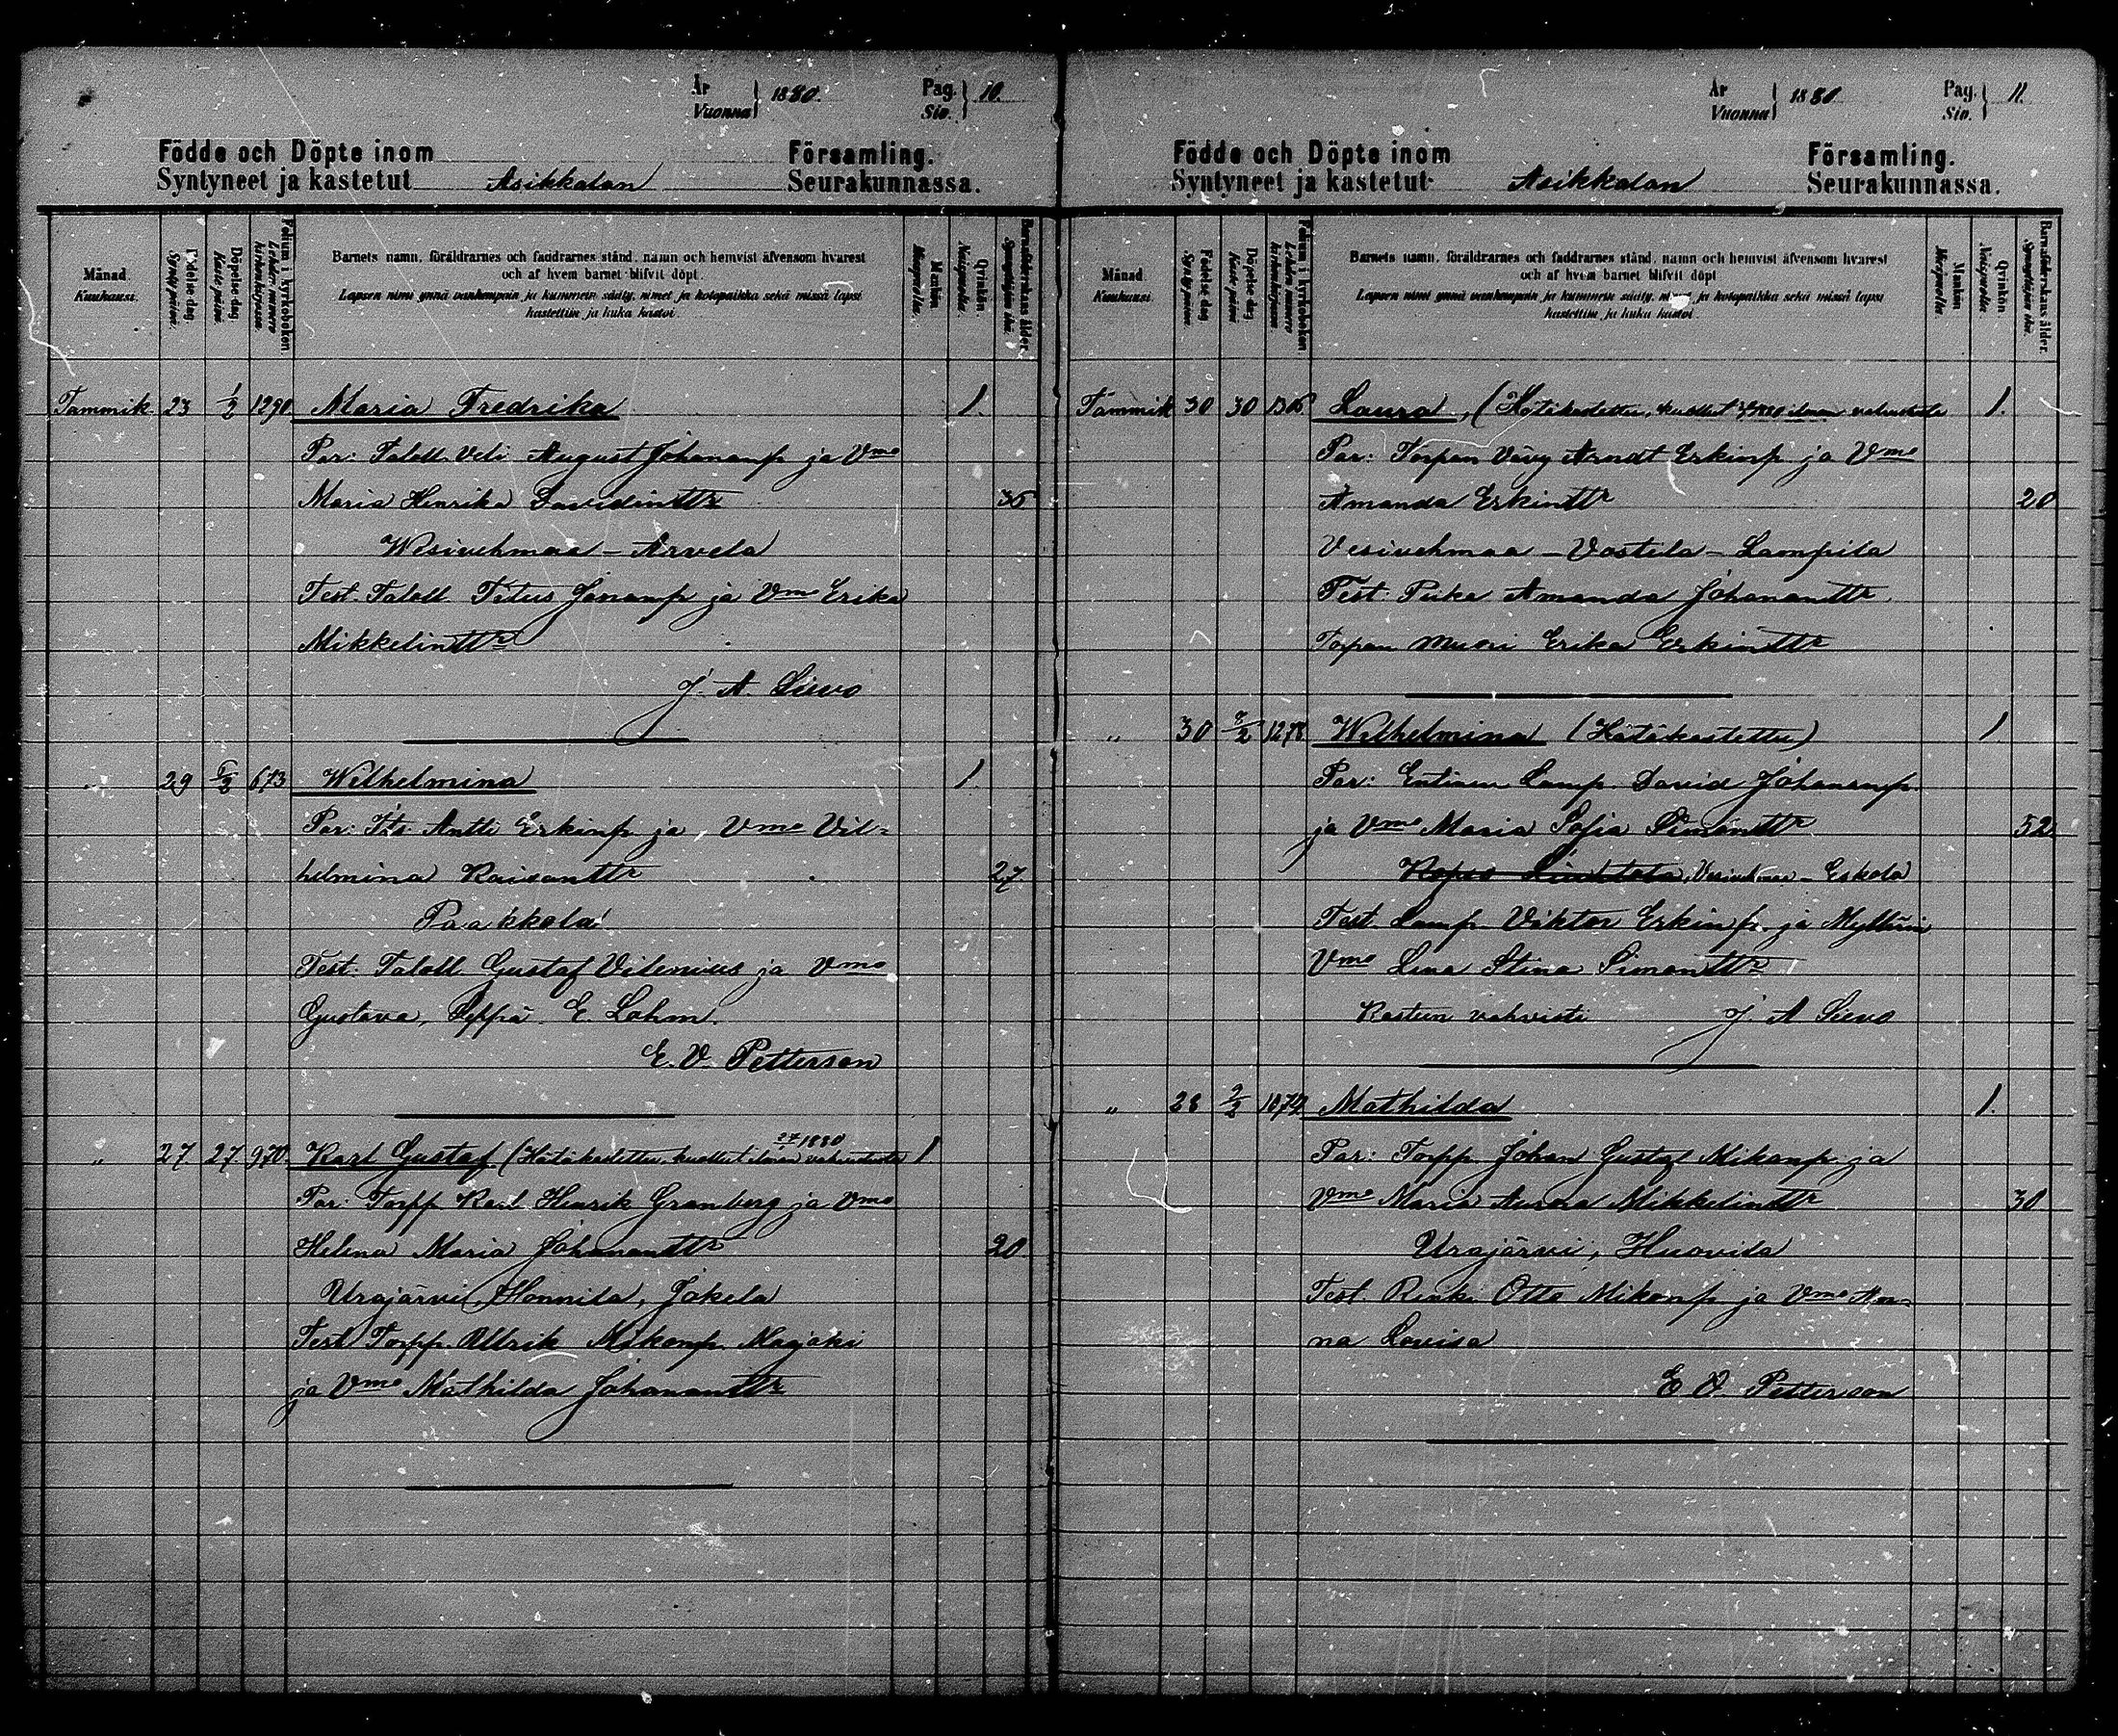 År Vuonna } 1880. Pag. Siv. } 10.
Födde och Döpte inom Församling.
Syntyneet ja kastetut Asikkalan Seurakunnassa.
Månad. Kuukausi.
Födelse dag. Synty päivä.
Döpelse dag. Kaste päivä.
Folium i kyrkoboken. Lehden numero kirkonkirjassa.
Barnets namn, föräldrarnes och faddrarnes stånd, namn och hemvist äfvensom hvarest
och af hvem barnet blifvit döpt.
Lapsen nimi ynnä vanhempain ja kummein sääty, nimet ja kotopaikka sekä missä lapsi
kastettiin ja kuka kastoi.
Mankön. Miespuolta.
Qvinkön. Naispuolta.
Barnaföderskans ålder. Synnyttäjän ikä.
Tammik. 23 1/2 1290 Maria Fredrika 1.
Par: Taloll. Veli August Johananp. ja Vmo
Maria Henrika Davidintr 36
Wesivehmaa – Arvela
Test. Taloll. Titus Jananp ja Vmo Erika
Mikkelintr
J. A. Lievo
" 29 673 Wilhelmina 1.
Par: Its. Antti Erkinp ja Vmo Vil-
helmina Kaisantr 27
Paakkola
Test: Taloll. Gustaf Vilenius ja Vmo
Gustava, Seppä E. Lohm.
E. V. Petterson
" 27 27 970 Karl Gustaf (Hätäkastettu, kuollut 27 1880 ilman vahvistusta 1
Par: Torpp Karl Henrik Granberg ja Vmo
Helena Maria Johanantr 20
Urajärvi, Honnila, Jokela
Test Torpp. Ullrik Mikonp. Majoki
ja Vmo Mathilda Johanantr
År Vuonna } 1880 Pag. Siv. } 11.
Födde och Döpte inom Församling.
Syntyneet ja kastetut Asikkalan Seurakunnassa.
Månad. Kuukausi.
Födelse dag. Synty päivä.
Döpelse dag. Kaste päivä.
Folium i kyrkoboken. Lehden numero kirkonkirjassa.
Barnets namn, föräldrarnes och faddrarnes stånd, namn och hemvist äfvensom hvarest
och af hvem barnet blifvit döpt
Lapsen nimi ynnä vanhempain ja kummein sääty, nimet ja kotopaikka sekä missä lapsi
kastettiin ja kuka kastoi.
Mankön Miespuolta.
Qvinkön Naispuolta
Barnaföderskans ålder. Synnyttäjän ikä.
Tammik 30 30 Laura, (Hätäkastettu, kuollut 1880 ilman vahvistusta 1.
Par: Torpan Vävy Arndt Erkinp ja Vmo
Amanda Erkintr 20
Vesivehmaa – Vastila – Lampila
Test: Piika Amanda Johanantr
Torpan muori Erika Erkintr
" 30 1278 Wilhelmina (Hätäkastettu) 1
Par: Entinen Lamp. David Johananp.
ja Vmo Maria Sofia Simontr 52
Vesivehmaa – Eskola
Test. Lamp. Viktor Erkinp. ja Myllärin
Vmo Lena Stina Simontr
Kasteen vahvisti J. A Lievo
" 28 2/2 1074 Mathilda 1.
Par: Torpp. Johan Gustaf Mikonp. ja
Vmo Maria Aurora Mikkelintr 30
Urajärvi, Huovila
Test. Renki Otto Mikonp ja Vmo An-
na Lovisa
E V. Petterson